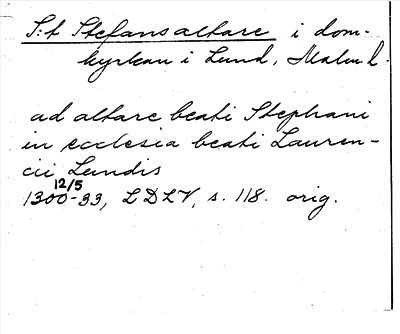 S:t Stefans altare i dom-
kyrkan i Lund, Malm l.
ad altare beati Stephani
in ecclesia beati Lauren-
cii Lundis
12/5
1300-33, LDLV, s. 118. orig.